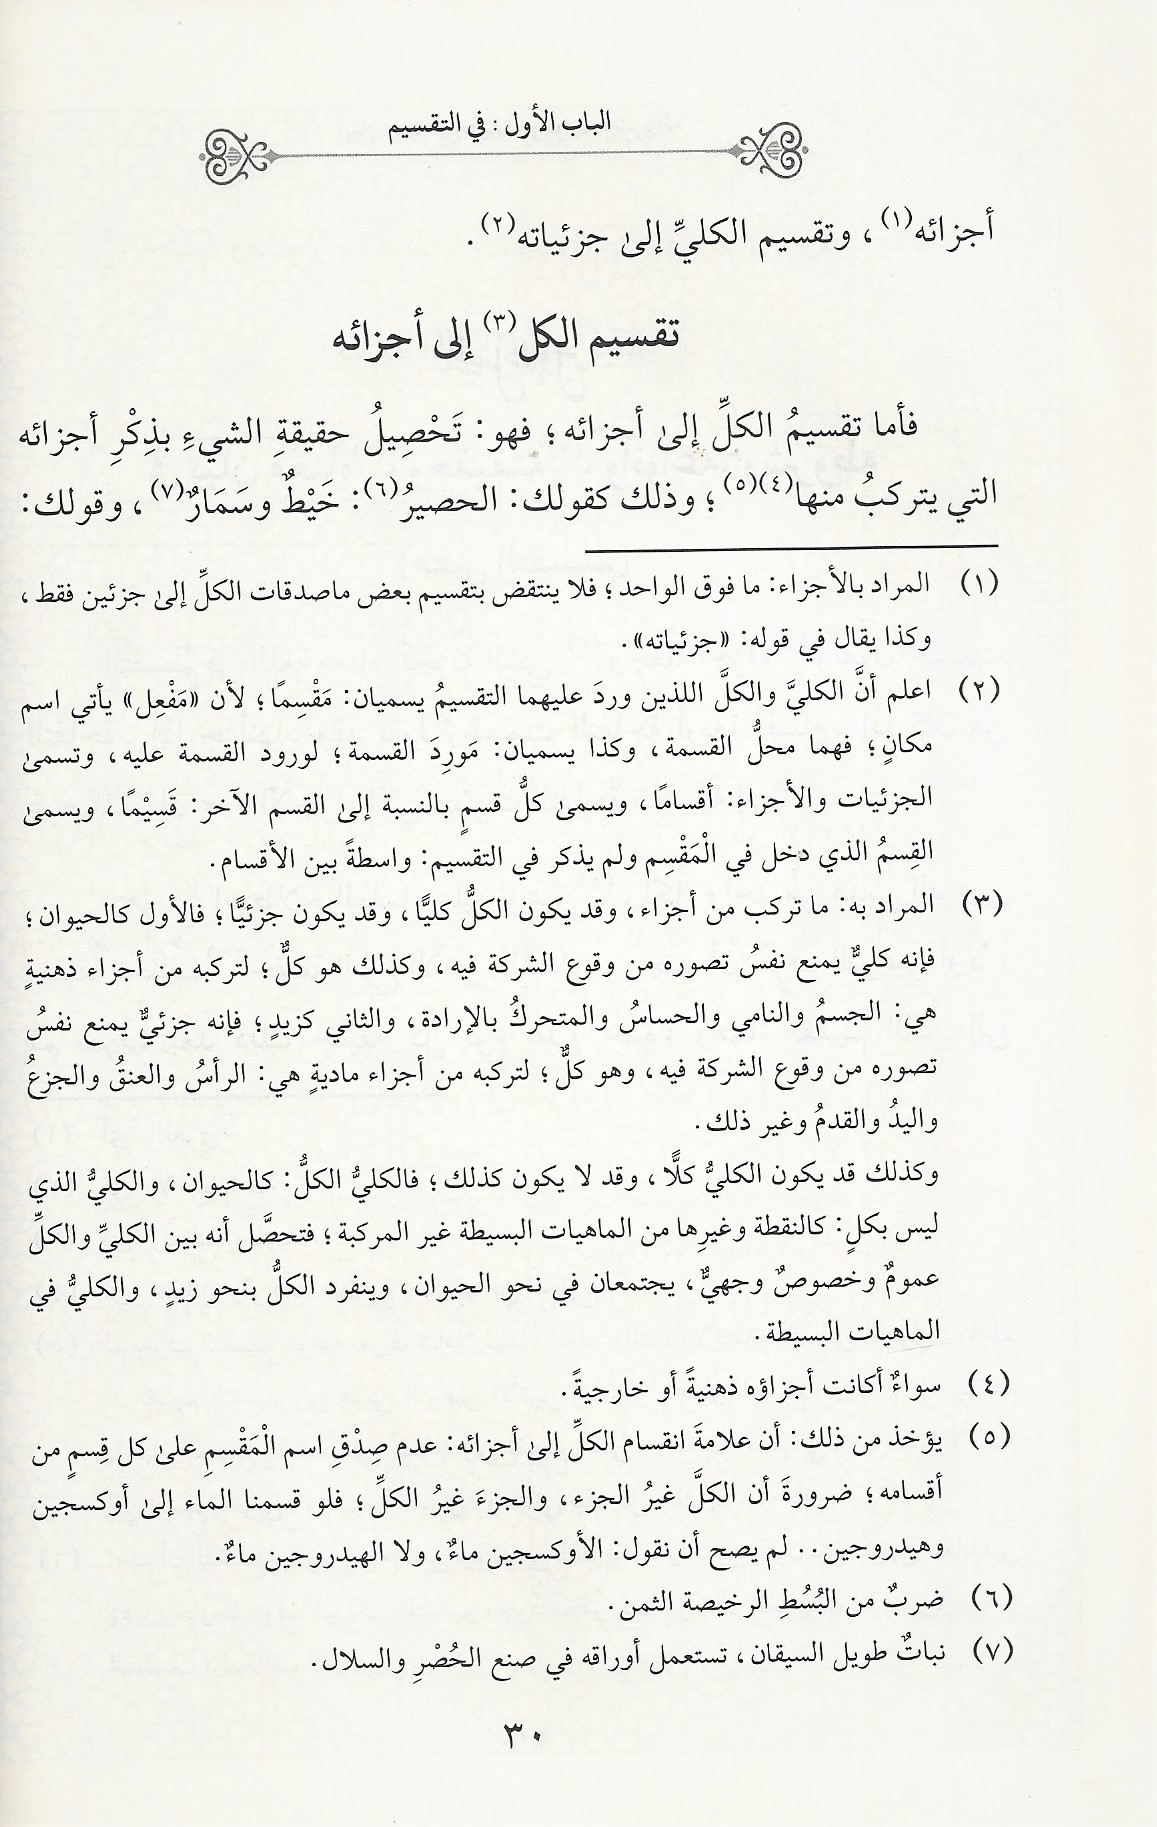 الباب الأول : في التقسيم
أجزائه(١) ، وتقسيم الكليِّ إلىٰ جزئياته(٢) .
تقسيم الكل(٣) إلى أجزائه
فأما تقسيمُ الكلِّ إلىٰ أجزائه ؛ فهو : تَحْصِيلُ حقيقةِ الشيءِ بذِكْرِ أجزائه
التي يتركبُ منها(٤)(٥) ؛ وذلك كقولك : الحصيرُ(٦) : خَيْطٌ وسَمَارٌ(٧) ، وقولك :
(١) المراد بالأجزاء : ما فوق الواحد ؛ فلا ينتقض بتقسيم بعض ماصدقات الكلِّ إلىٰ جزئين فقط ،
وكذا يقال في قوله : «جزئياته» .
(٢) اعلم أنَّ الكليَّ والكلَّ اللذين وردَ عليهما التقسيمُ يسميان : مَقْسِمًا ؛ لأن «مَفْعِل» يأتي اسم
مكانٍ ؛ فهما محلُّ القسمة ، وكذا يسميان : مَورِدَ القسمة ؛ لورود القسمة عليه ، وتسمىٰ
الجزئيات والأجزاء : أقسامًا ، ويسمىٰ كلُّ قسمٍ بالنسبة إلىٰ القسم الآخر : قَسِيْمًا ، ويسمىٰ
القِسمُ الذي دخل في الْمَقْسِم ولم يذكر في التقسيم : واسطةً بين الأقسام .
(٣) المراد به : ما تركب من أجزاء ، وقد يكون الكلُّ كليًّا ، وقد يكون جزئيًّا ؛ فالأول كالحيوان ؛
فإنه كليٌّ يمنع نفسُ تصوره من وقوع الشركة فيه ، وكذلك هو كلٌّ ؛ لتركبه من أجزاء ذهنيةٍ
هي : الجسمُ والنامي والحساسُ والمتحركُ بالإرادة ، والثاني كزيدٍ ؛ فإنه جزئيٌّ يمنع نفسُ
تصوره من وقوع الشركة فيه ، وهو كلٌّ ؛ لتركبه من أجزاء ماديةٍ هي : الرأسُ والعنقُ والجزعُ
واليدُ والقدمُ وغير ذلك .
وكذلك قد يكون الكليُّ كلًّا ، وقد لا يكون كذلك ؛ فالكليُّ الكلُّ : كالحيوان ، والكليُّ الذي
ليس بكلٍ : كالنقطة وغيرِها من الماهيات البسيطة غير المركبة ؛ فتحصَّل أنه بين الكليِّ والكلِّ
عمومٌ وخصوصٌ وجهيٌّ ، يجتمعان في نحو الحيوان ، وينفرد الكلُّ بنحو زيدٍ ، والكليُّ في
الماهيات البسيطة .
(٤) سواءٌ أكانت أجزاؤه ذهنيةً أو خارجيةً .
(٥) يؤخذ من ذلك : أن علامةَ انقسام الكلِّ إلىٰ أجزائه : عدم صِدْقِ اسم الْمَقْسِمِ علىٰ كل قِسمٍ من
أقسامه ؛ ضرورةَ أن الكلَّ غيرُ الجزء ، والجزءَ غيرُ الكلِّ ؛ فلو قسمنا الماء إلىٰ أوكسجين
وهيدروجين .. لم يصح أن نقول : الأوكسجين ماءٌ ، ولا الهيدروجين ماءٌ .
(٦) ضربٌ من البُسُطِ الرخيصة الثمن .
(٧) نباتٌ طويل السيقان ، تستعمل أوراقه في صنع الحُصْرِ والسلال .
٣٠